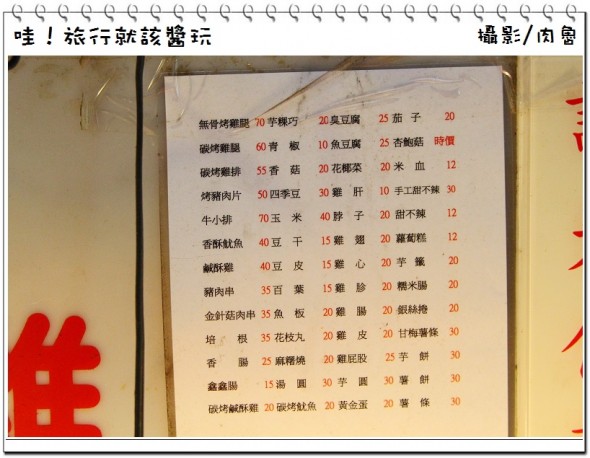 哇！旅行就該醬玩
攝影/肉魯
無骨烤雞腿 70 芋粿巧 20 臭豆腐 25 茄子 20
碳烤雞腿 60 青椒 10 魚豆腐 25 杏鮑菇 時價
碳烤雞排 55 香菇 20 花椰菜 20 米血 12
烤豬肉片 50 四季豆 30 雞肝 10 手工甜不辣 30
牛小排 70 玉米 40 脖子 20 甜不辣 12
香酥魷魚 40 豆干 15 雞翅 20 蘿蔔糕 12
鹹酥雞 40 豆皮 15 雞心 20 芋籤 20
豬肉串 35 百葉 15 雞胗 20 糯米腸 20
金針菇肉串 35 魚板 20 雞腸 20 銀絲捲 20
培根 35 花枝丸 20 雞皮 20 甘梅薯條 30
香腸 25 麻糬燒 20 雞屁股 25 芋餅 30
鑫鑫腸 15 湯圓 30 芋圓 30 薯餅 30
碳烤鹹酥雞 20 碳烤魷魚 20 黃金蛋 20 薯條 30